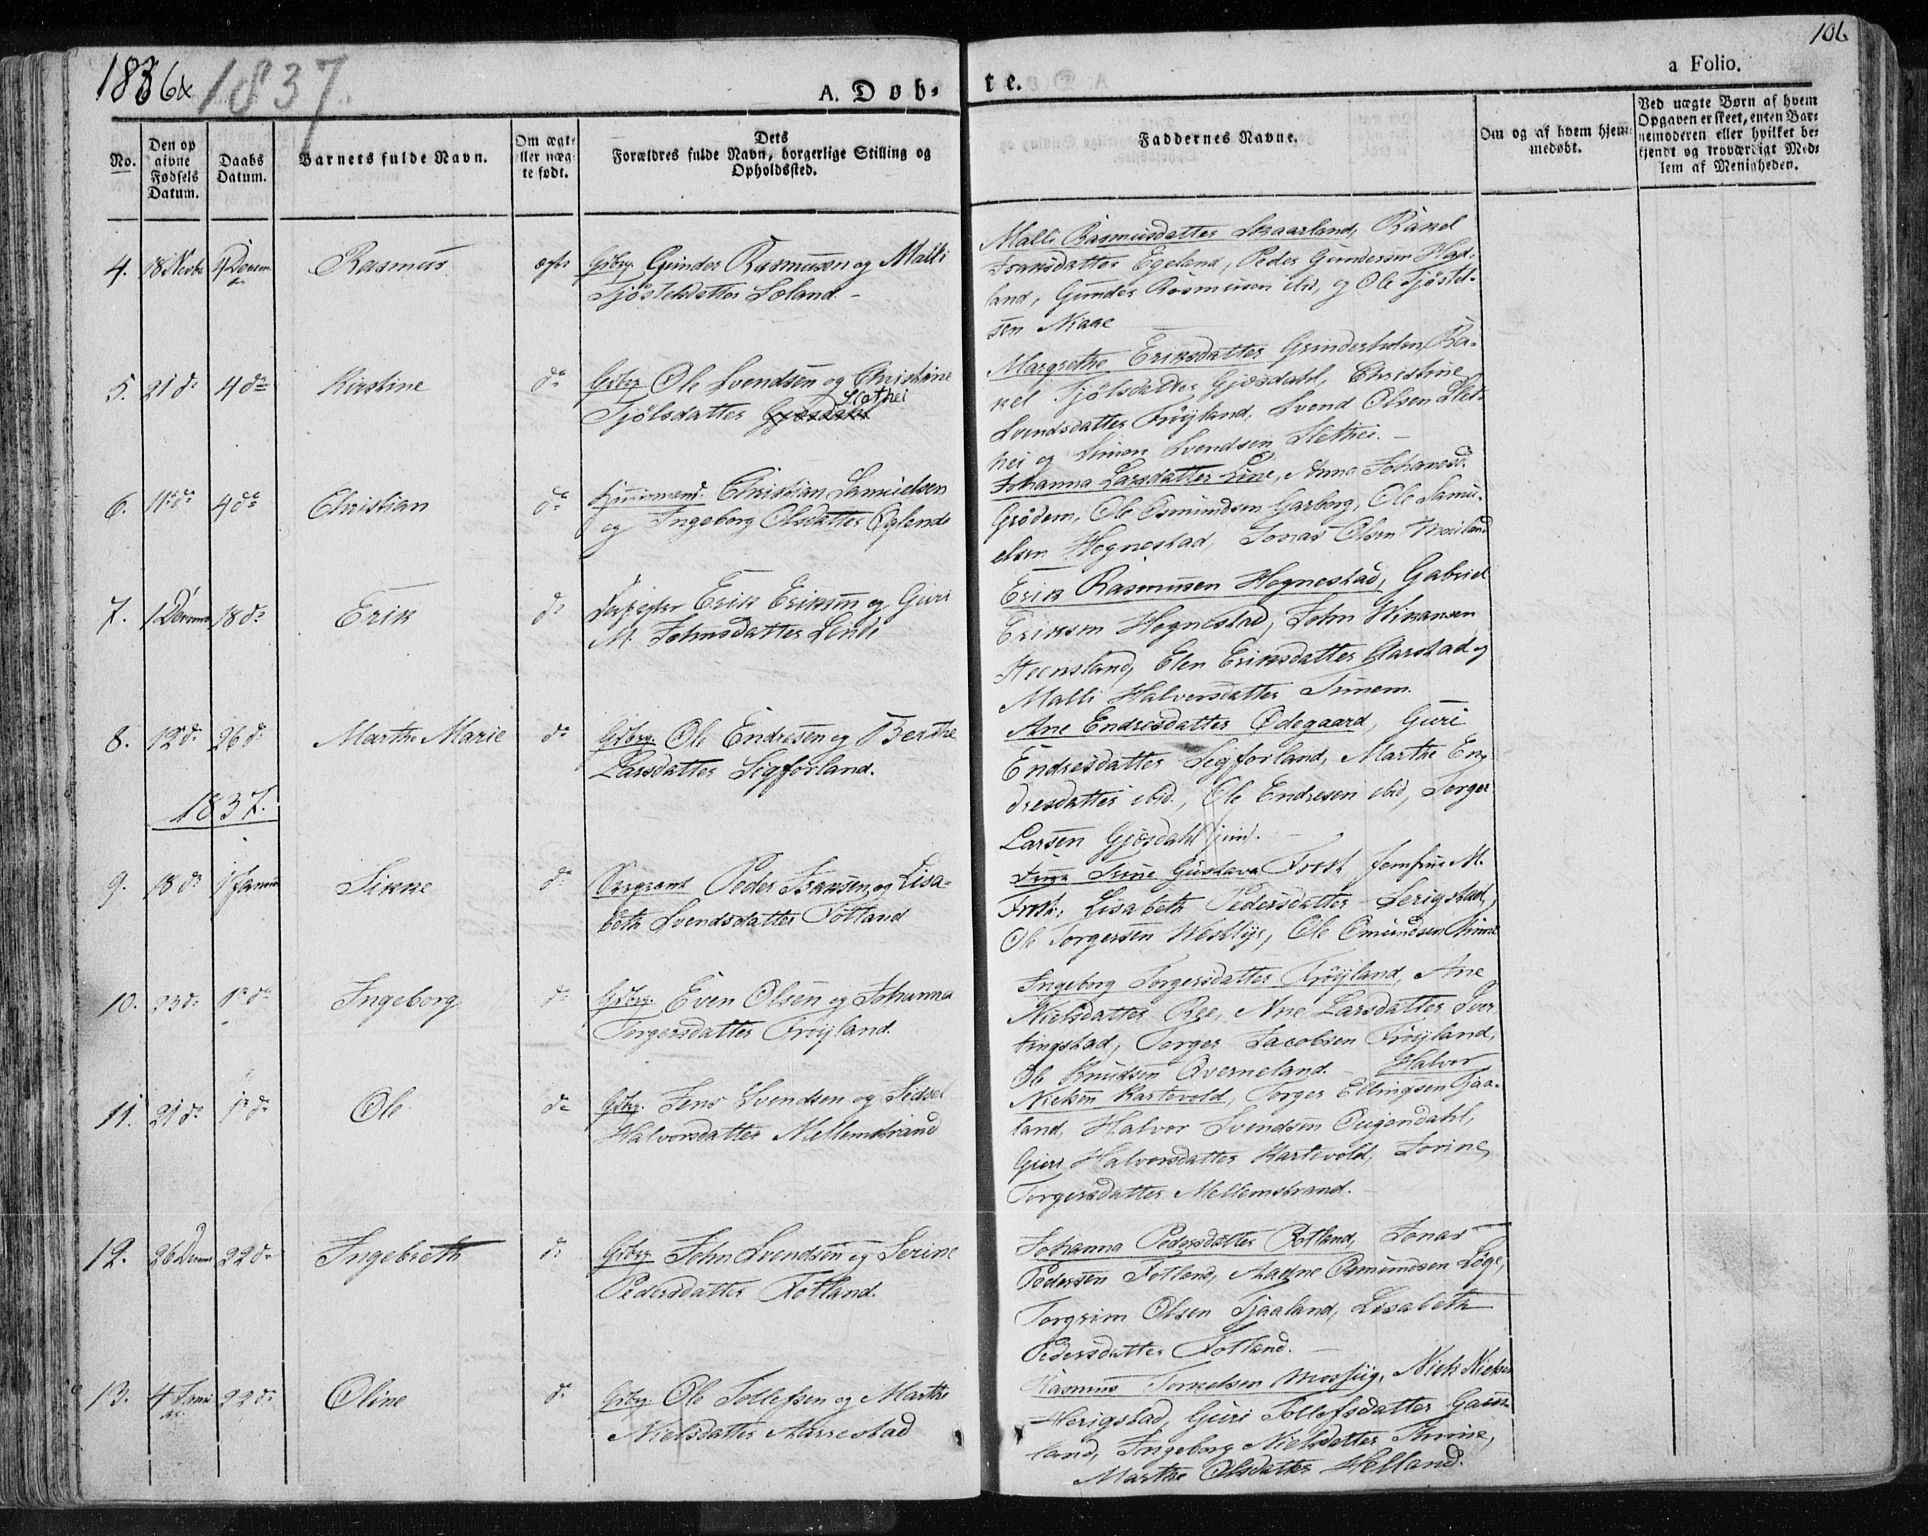 1836 & 1837.
106
A. Døb-
te.
a Folio.
No.
Den op
givne
Fødsels
Datum.
Daabs
Datum.
Barnets fulde Navn.
Om ægt-
eller uæg-
te født.
Dets
Forældres fulde Navn, borgerlige Stilling og
Opholdssted.
Faddernes Navne.
Om og af hvem hjem-
medøbt.
Ved uægte Børn af hvem
Opgaven er skeet, enten Bar-
nemoderen eller hvilket be-
kjendt og troværdigt Med-
lem af Menigheden.
4. 18 Novbr 4 Decem. Rasmus ægte Gdbrg. Gunder Rasmusen og Malli
Tjöstelsdatter Loland.
Malli Rasmusdatter Skaarland, Rakel
Fransdatter Egeland, Peder Gundersen Hød-
land, Gunder Rasmusen ibd, og Ole Tjöstel-
sen Niaae
5. 21 do 4 do Kirstine do Gdbrg Ole Svendsen og Christine
Slethei
Tjölsdatter Gjösdahl
Margrethe Eriksdatter Grinderheien, Ra-
kel Tjölsdatter Gjösdahl, Christine
Svendsdatter Fröÿland, Svend Olsen Slet-
hei og Simon Svendsen Slethei.
6. 11 do 4 do Christian do Huusmand. Christian Samuelsen
og Ingeborg Olsdatter Øglend
Johanna Larsdatter Line, Anna Johansd.
Grödem, Ole Osmundsen Garborg, Ole Samu-
elsen Hognestad, Jonas Olsen
7. 1 Decemb 18 do Erik do Erik Eriksen og Guri
M. Johnsdatter Linde
Erik Rasmusen Hognestad, Gabriel
Eriksen Hognestad, John Wikansen
Steensland, Elen Eriksdatter Aarstad og
Malli Halvorsdatter Tunem.
8. 12 do 26 do Marthe Marie do Gdbrg. Ole Endresen og Berthe
Larsdatter Sigforland.
Ane Endresdatter Ødegaard, Guri
Endresdatter Sigforland, Marthe En-
dresdatter ibid., Ole Endresen ibd, Torger
Larsen Gjösdahl jun.
1837.
9. 18 do 1 Januar Sikke do Sergeant Peder Fransen og Lisa-
beth Svendsdatter Fotland
Gustava Frost, Jomfrue M.
Frost, Lisabeth Pedersdatter Serigstad,
Ole Torgersen Westlye, Ole Omundsen Thime
10. 23 do 1 do Ingeborg do Gdbrg. Even Olsen og Johanna
Torgersdatter Fröÿland.
Ingeborg Torgersdatter Fröÿland, Ane
Nielsdatter Ree, Ane Larsdatter Tver-
tingstad, Torger Jacobsen Fröÿland,
Ole Knudsen Qverneland. Halvor
11. 21 do 1 do Ole do Gdbrg. Jens Svendsen og Sidsel
Halvorsdatter Mellemstrand
Nielsen Kartevold, Torger Ellingsen Tjaa-
land, Halvor Svendsen Ougendahl,
Guri Halvorsdatter Kartevold, Sorine
Torgersdatter Mellemstrand.
12. 26 Decem 22 do Ingebreth do Gdbrg John Svendsen og Serine
Pedersdatter Fotland.
Johanna Pedersdatter Fotland, Jonas
Pedersen Fotland, Aadne Osmundsen Løge,
Torgrim Olsen Tjaaland, Lisabeth
Pedersdatter Fotland.
13. 4 Janu
ar. 22 do Oline do Gdbrg Ole Tollefsen og Marthe
Nielsdatter Aarrestad
Rasmus Torkelsen Mossiig, Niels Nielsen
Herigstad, Guri Tollefsdatter Gaus-
land, Ingeborg Nielsdatter Thime,
Marthe Olsdatter Helland.